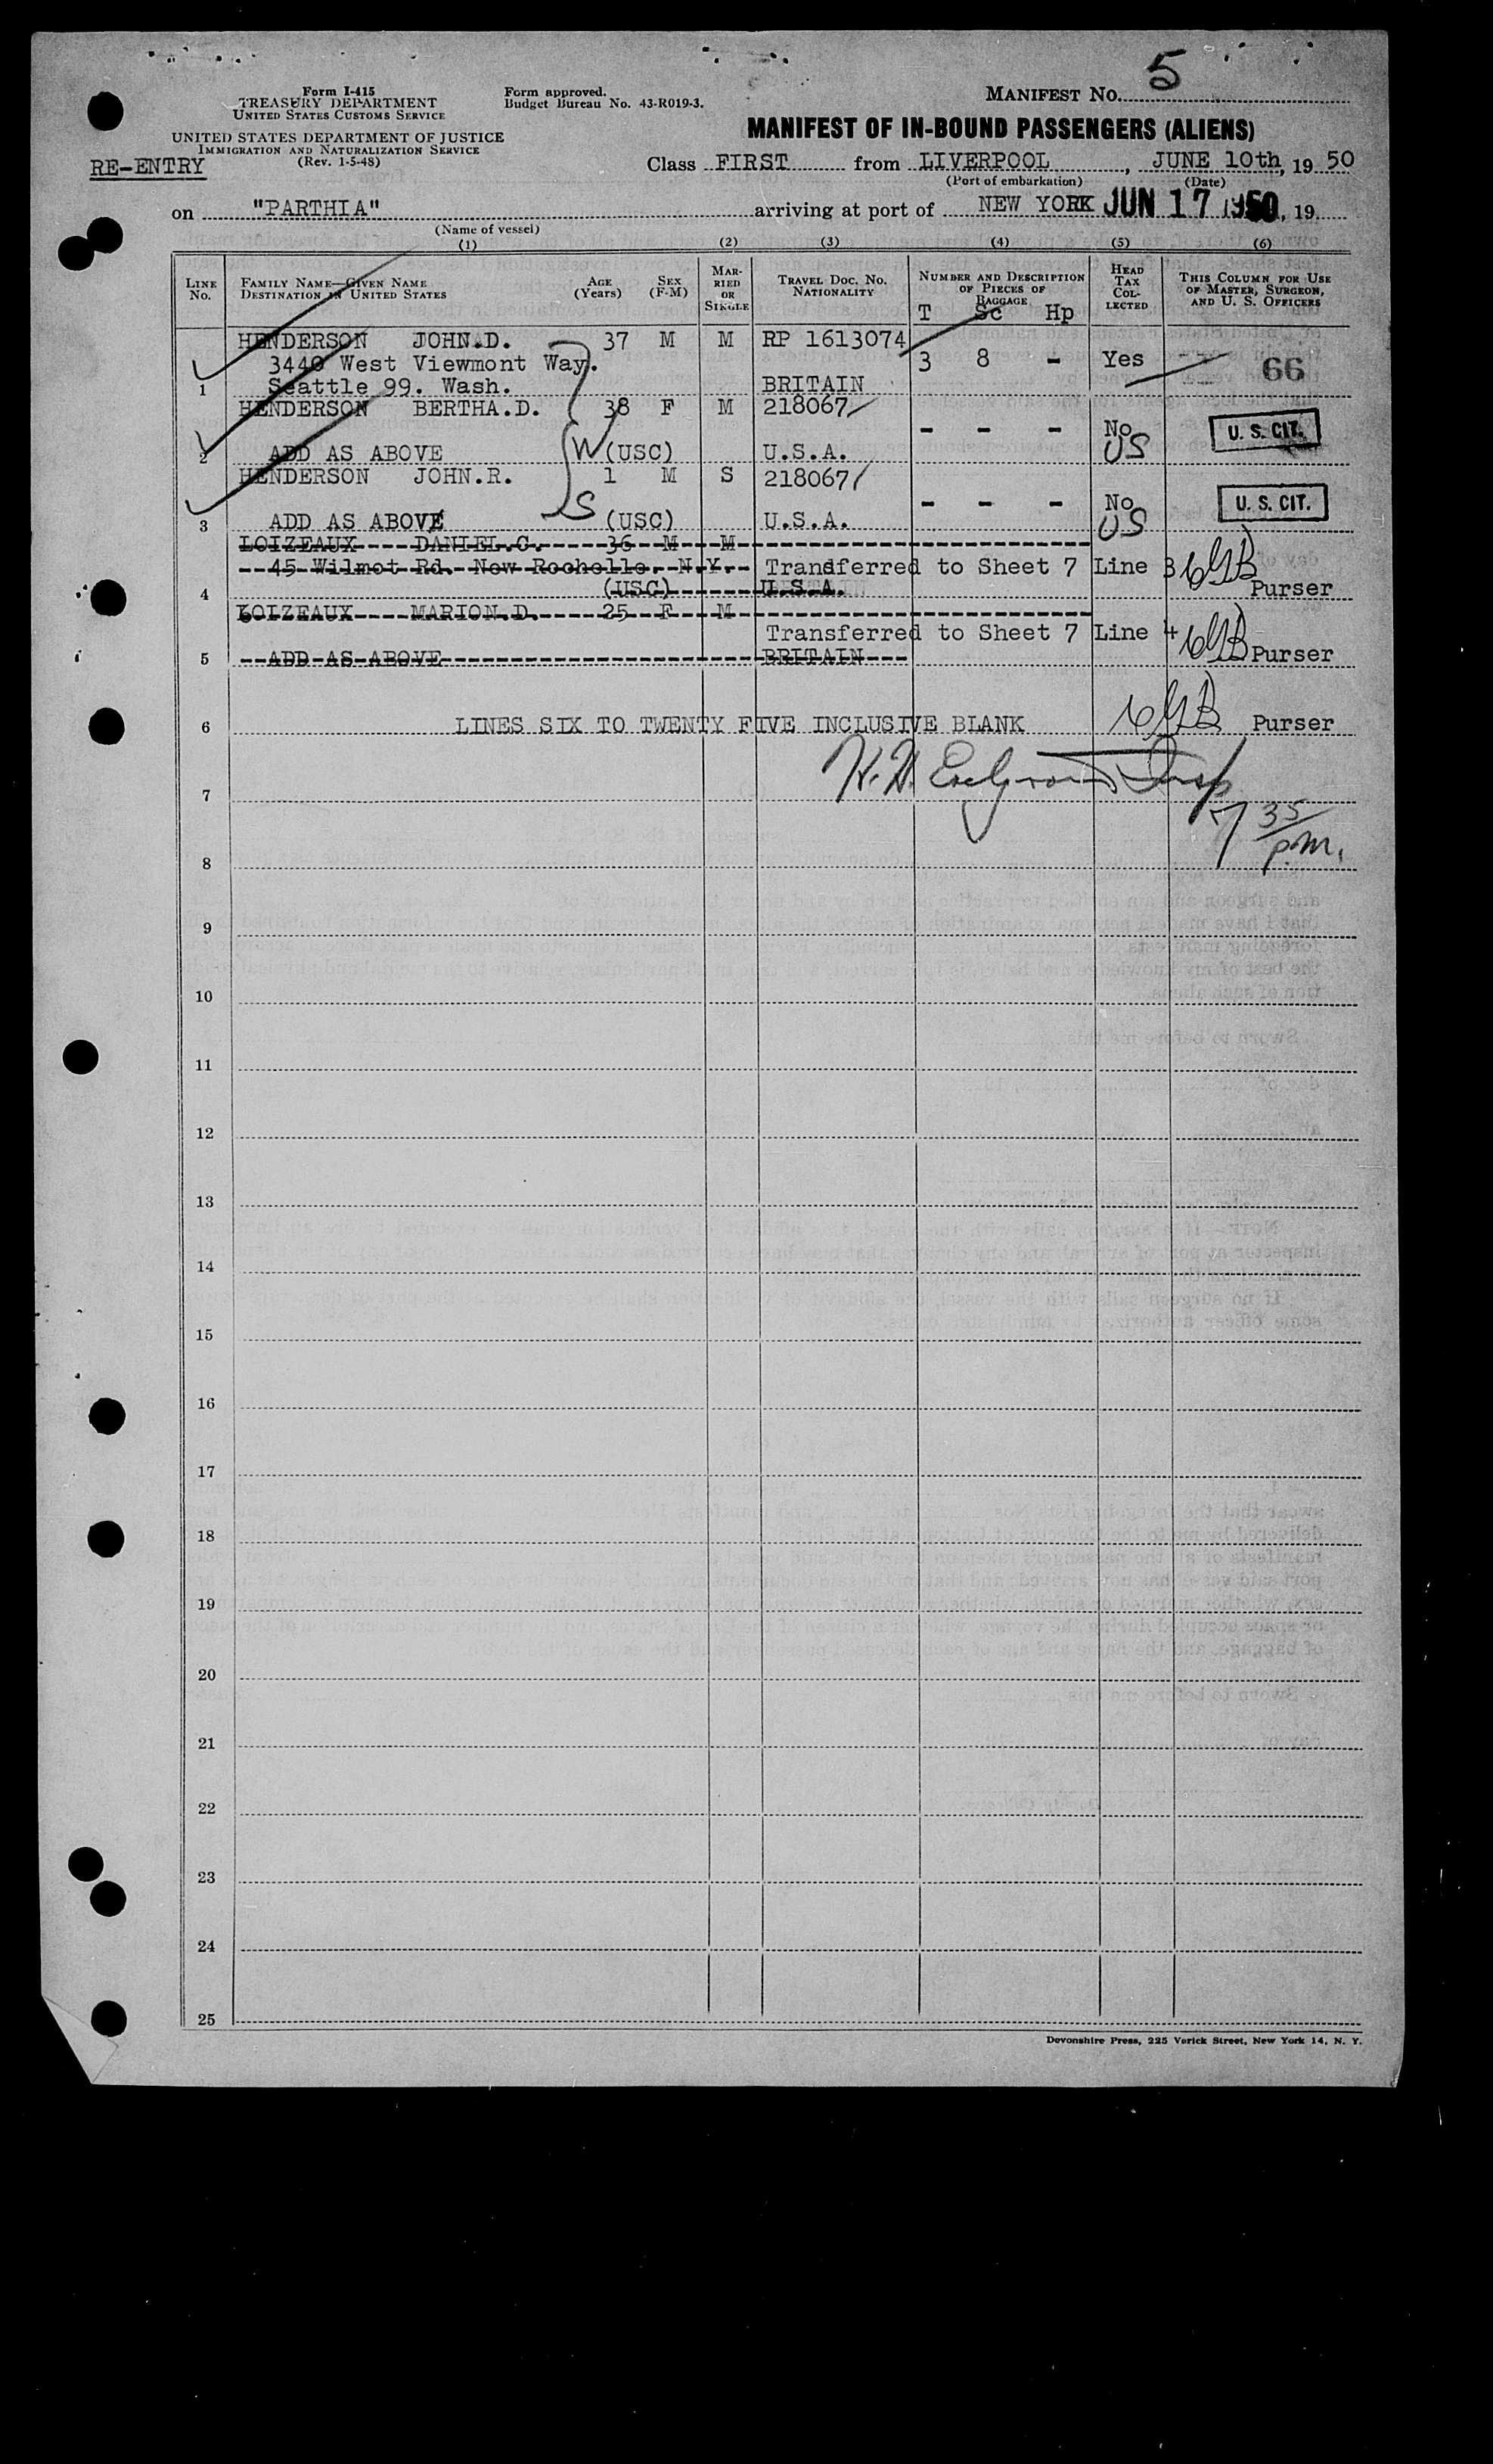 5
Form I-415
TREASURY DEPARTMENT
UNITED STATES CUSTOMS SERVICE
Form approved.
Budget Bureau No. 43-R019-3.
MANIFEST NO.
UNITED STATES DEPARTMENT OF JUSTICE
IMMIGRATION AND NATURALIZATION SERVICE
(Rev. 1-5-48)
RE-ENTRY
MANIFEST OF IN-BOUND PASSENGERS (ALIENS)
Class FIRST from LIVERPOOL, JUNE 10th, 19 50
(Port of embarkation) (Date)
on "PARTHIA" arriving at port of NEW YORK JUN 17 1950, 19
(Name of vessel)
(1) (2) (3) (4) (5) (6)
LINE NO.
FAMILY NAME—GIVEN NAME
DESTINATION IN UNITED STATES
AGE (Years)
SEX (F-M)
MARRIED OR SINGLE
TRAVEL DOC. NO. NATIONALITY
NUMBER AND DESCRIPTION OF PIECES OF BAGGAGE
T Sc Hp
HEAD TAX COLLECTED
THIS COLUMN FOR USE OF MASTER, SURGEON, AND U. S. OFFICERS
HENDERSON JOHN.D. 37 M M RP 1613074
3440 West Viewmont Way. 3 8 - Yes 66
1 Seattle 99. Wash. BRITAIN
HENDERSON BERTHA.D. 38 F M 218067
- - - No U. S. CIT.
2 ADD AS ABOVE W (USC) U.S.A. US
HENDERSON JOHN.R. 1 M S 218067
- - - No U. S. CIT.
3 ADD AS ABOVE S (USC) U.S.A. US
LOIZEAUX DANIEL.C. 36 M M
45 Wilmot Rd. New Rochelle. N.Y. Transferred to Sheet 7 Line 3
4 (USC) U.S.A. Purser
LOIZEAUX MARION.D. 25 F M
Transferred to Sheet 7 Line 4
5 ADD AS ABOVE BRITAIN Purser
6 LINES SIX TO TWENTY FIVE INCLUSIVE BLANK Purser
7
7 35 p.m.
8
9
10
11
12
13
14
15
16
17
18
19
20
21
22
23
24
25
Devonshire Press, 225 Varick Street, New York 14, N. Y.